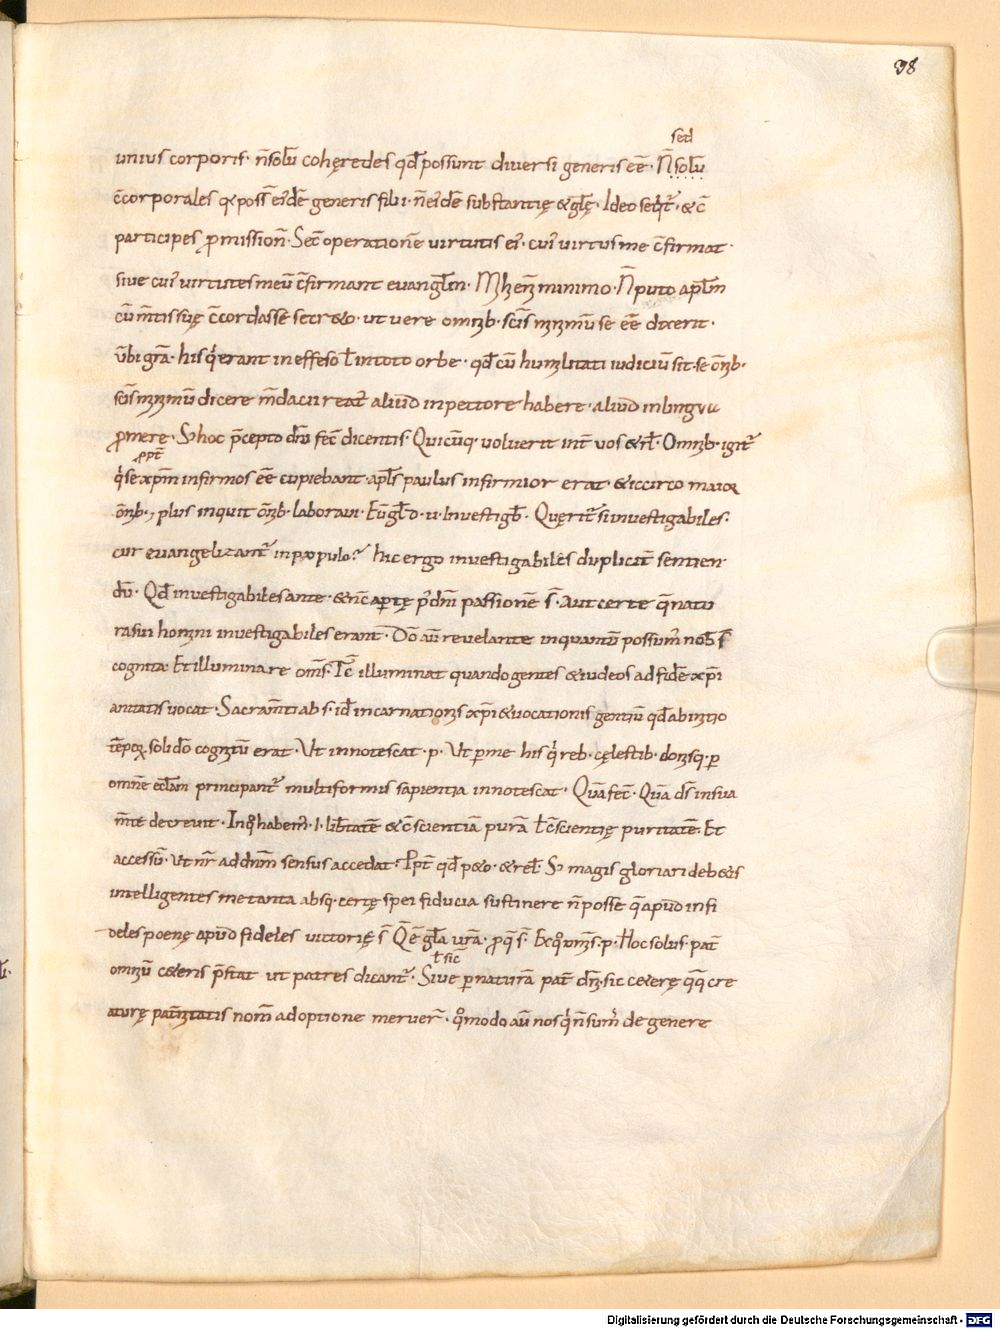 98
sed
unius corporis· n̄ solū cohęredes qd̄ possunt diversi generis eē· N̄ solū
c̄corporales q poss̄ ei'dē generis filii· n̄ ei'dē substantię & gl̄ę· Ideo seqt̄· & c̄
participes p̱missioñ· Sec̄ operationē virtutis ei'· cui' virtus me c̄firmat·
sive cui' virtutes meū c̄firmant evangl̄m· Mh enī minimo· N̄ puto apl̄m
cū m̄tis suę c̄cordasse secr&o· ut vere omnib· sc̄is minimū se eē dixerit·
ūbi gr̄a· his q̍ erant in effeso l̄ in toto orbe· qd̄ cū humilitati iudiciū sit· se ōnib·
sc̄is minimū dicere m̄dacii reat' aliud in pectore habere· aliud in lingua
p̱mere· S; hoc p̄cepto dn̄i fec̄ dicentis Quicūq· voluerit int̄ vos & rl̄· Omnib· igit̄
ꝓpt̄
q̍ se xp̄m infirmos eē cupiebant· apl̄s paulus infirmior erat· & iccirco maior
ōnib·, plus inquit ōnib· laboravi· Investigb̄· Querit̄ si investigabiles·
cur evangelizant̄ in populo? hic ergo investigabiles dupliciter sentien
dū· Qd̄ investigabiles ante· & nc̄ apertę p' dn̄i passionē s̄· Aut certe q̄ natu
ra sui homini investigabiles erant· Dō aū revelante inquantū possum' nob̄ s̄
cognita· Et illuminare om̄s· Tc̄ illuminat quando gentes & iudeos ad fidē xp̄i
anitatis vocat· Sacram̄ti ab s· id̄ incarnationis xp̄i & vocationis gentiū qd̄ ab initio
tēpor soli dō cognitū erat· Ut innotescat· p· Ut p̱ me his q̍ reb· cęlestib· donisq· p̱
omnē eccl̄am principant̄ multiformis sapientia innotescat· Quā fec̄· Quā ds̄ in sua
m̄te decrevit· In q̊ habem'· i· lib̄tatē & c̄scientiā purā l̄ c̄scientię puritatē· Et
accessū· Ut nr̄ ad dn̄m sensus accedat· Ppt̄ qd̄ p&o· & rel̄· S; magis gloriari deb&is
intelligentes me tanta absq· certę spei fiducia sustinere n̄ posse q̄ apud infi
deles poenę apud fideles victorię s̄ Quē gl̄a vr̄a· Ex q̊ omīs· p· Hoc solus pat̄
l̄ sic
omniū c&eris p̄stat ut patres dicant̄· Sive p̱ naturā pat̄ dn̄i· sic c&erę q̄q̄ cre
aturę pat̄nitatis nom̄ adoptione meruer̄· q̊modo aū nos q̍ n̄ sum' de genere
Digitalisierung gefördert durch die Deutsche Forschungsgemeinschaft - DFG